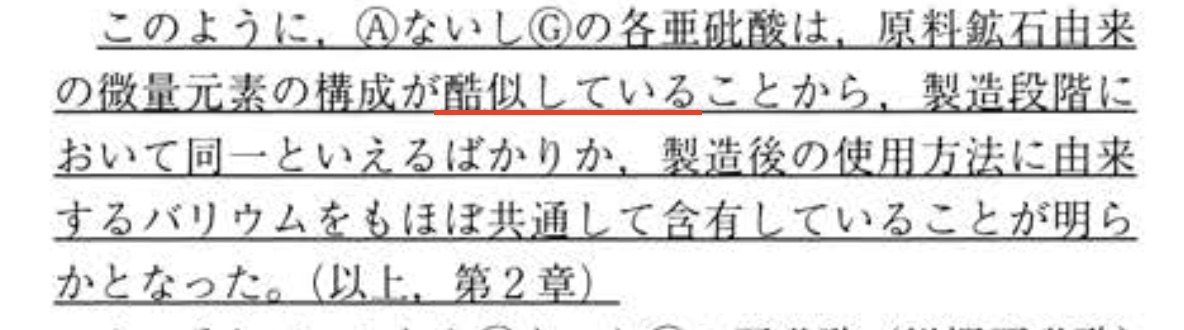 このように，ⒶないしⒼの各亜砒酸は，原料鉱石由来
の微量元素の構成が酷似していることから，製造段階に
おいて同一といえるばかりか，製造後の使用方法に由来
するバリウムをもほぼ共通して含有していることが明ら
かとなった。（以上，第２章）